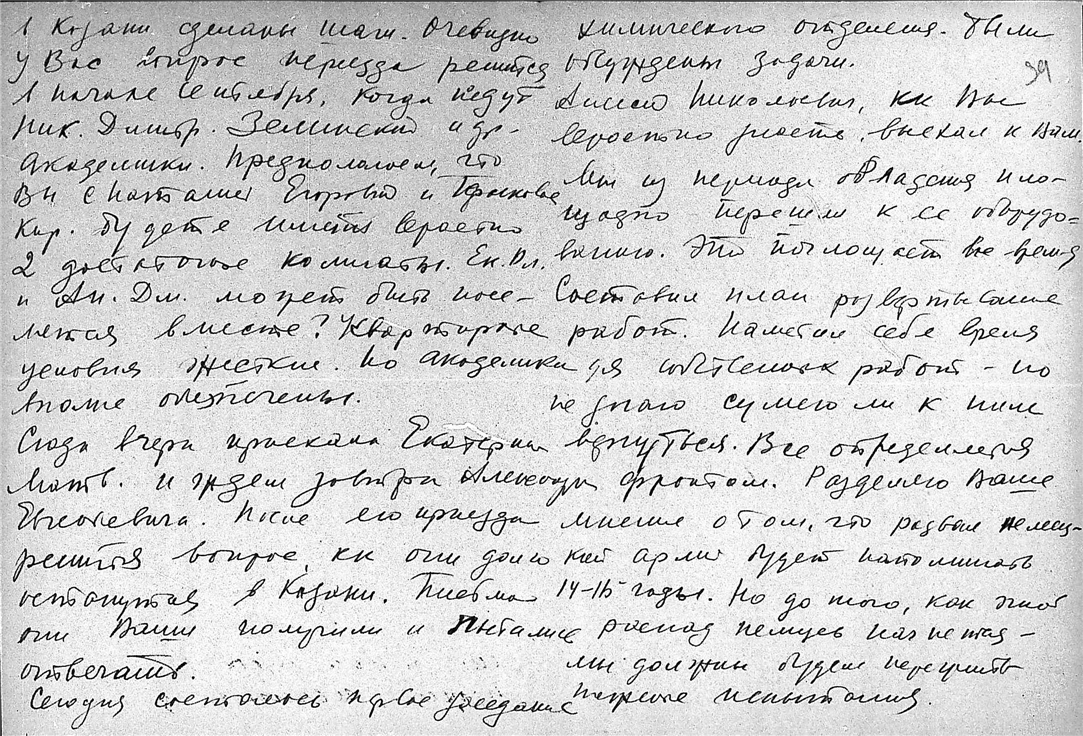 в Казани сделаны шаги. Очевидно
у Вас вопрос переезда решится
в начале сентября, когда приедут
Ник. Дмитр. Зелинский и др.
академики. Предполагаем, что
Вы с Наталией Егоровной и
Кир. будете иметь вероятно
2 достаточные комнаты. Ек. Вл.
и Ан. Дм. может быть посе-
лятся вместе? Квартирные
условия жесткие. Но академики
вполне обеспечены.
Сюда вчера приехала Екатерина
Матв. и ждем завтра Александра
Евгеньевича. После его приезда
решится вопрос, как они долго
останутся в Казани. Письма
они Ваши получили и пытались
отвечать.
Сегодня состоялось первое заседание
39
химического отделения. Были
обсуждены задачи.
Николаевич, как Вы
вероятно знаете, выехал к Вам.
Мы из периода овладения пло-
щадью перешли к ее оборудо-
ванию. Это поглощает все время
Составил план развертывания
работ. Наметил себе время
для собственных работ - но
не знаю сумею ли к ним
вернуться. Все определяется
фронтом. Разделяю Ваше
мнение о том, что развал немец-
кой армии будет напоминать
14-15 годы. Но до того, как этот
распад немцев начнется -
мы должны будем пережить
тяжелые испытания.